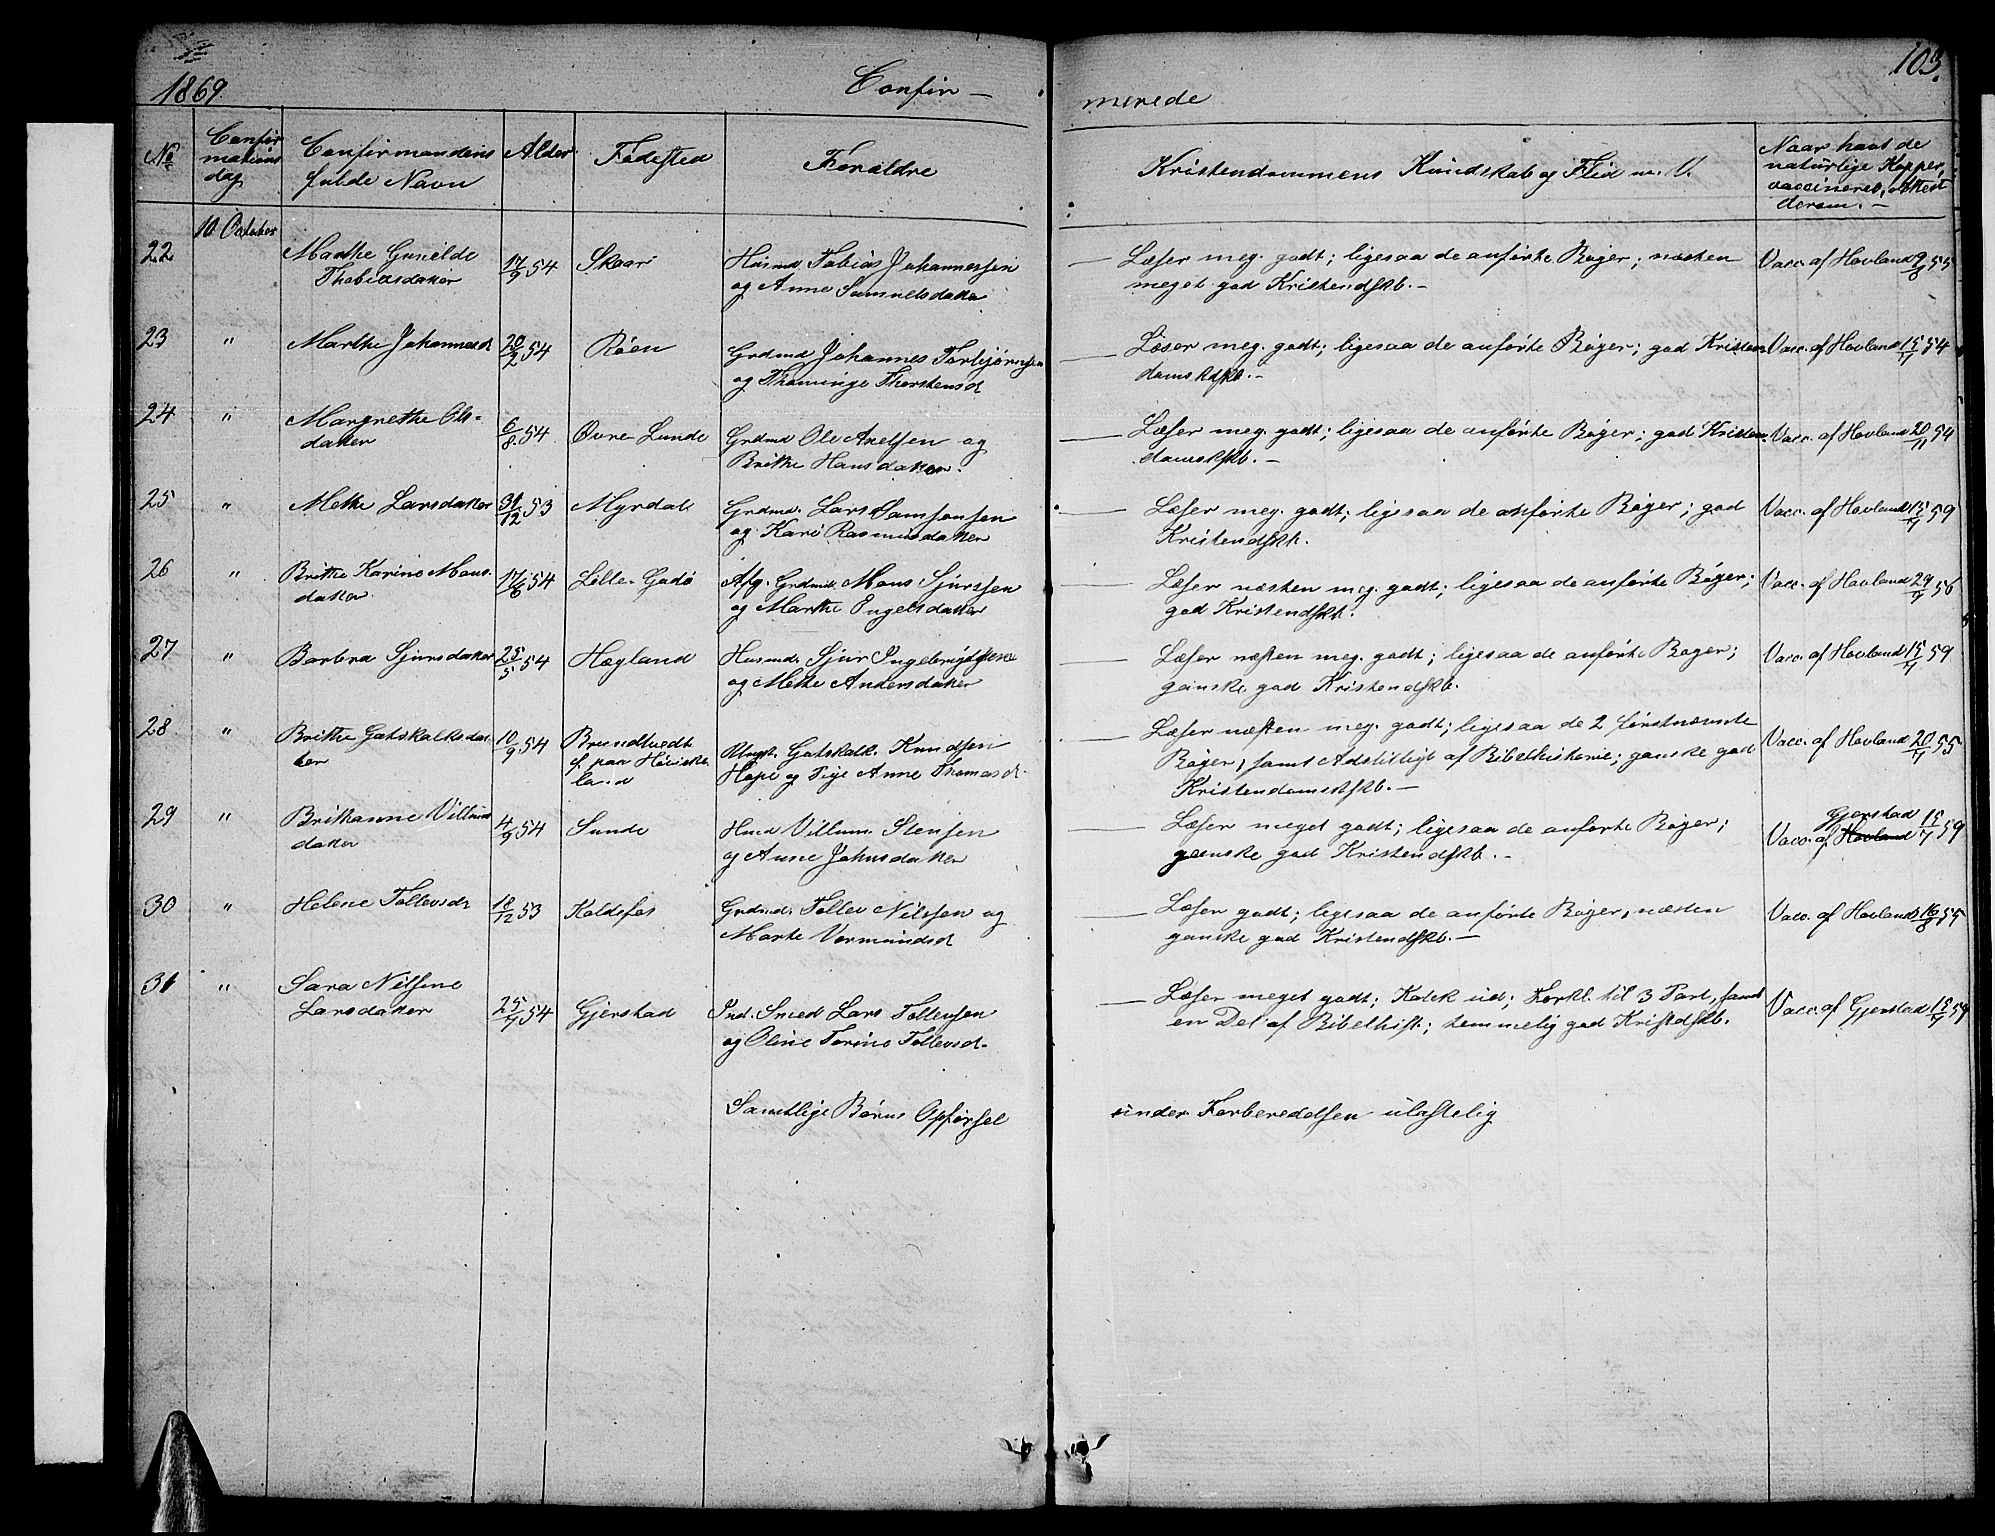 1869.
Confir-
merede
103.
No
Confirmations dag
Confirmandens fulde Navn
Alder
Fødested
Forældre
Kristendommens Kundskab og Flid m. V.
Naar havt de naturlige Kopper, vaccineret, Attest derom.-
10 October
22
Marthe Gunilde
Thobiasdatter
17/9 54
Skaar
Husmd. Tobias Johannessen
og Anne Samuelsdatter
Læser meg. godt; ligesaa de anførte Bøger; næsten
meget god Kristendskb.-
Vacc. af Hovland 9/8 55
23
"
Marthe Johannesd
20/2 54
Røen
Grdmd Johannes Torbjørnsen
og Thominge Thorstensd
Læser meg. godt; ligesaa de anførte Bøger; god Kristen
domskskb.-
Vacc. af Hovland 15/7 54
24
"
Margrethe Ols-
datter
6/8 54
Øvre Lunde
Grdmd Ole Axelsen og
Brithe Hansdatter.
Læser meg. godt; ligesaa de anførte Bøger; god Kristen
domskskb.-
Vacc. af Hovland 20/11 54
25
"
Mette Larsdatter
31/12 53
Myrdal
Grdmd. Lars Samsonsen
og Kari Rasmusdatter
Læser meg. godt; ligesaa de anførte Bøger; god
Kristendskb.
Vacc. af Hovland 15/7 59
26
"
Brithe Karine Mons
datter
17/6 54
Lille Gadø
Afg. Grdmd. Mons Sjurssen
og Marthe Engelsdatter
Læser næsten meg. godt; ligesaa de anførte Bøger;
god Kristendskb.
Vacc. af Hovland 29/7 56
27
"
Barbra Sjursdatter
25/5 54
Hægland
Husmd. Sjur Ingebrigtsen
og Mette Andersdatter
Læser næsten meg. godt; ligesaa de anførte Bøger;
ganske god Kristendskb.
Vacc. af Hovland 15/7 59
28
"
Brithe Gotskalksdat
ter
10/9 54
Brundtvedt
f. paa
Ungk. Gotskalk Knudsen
Hope og Pige Anne Thomasd.
Læser næsten meg. godt; ligesaa de 2 førstnævnte
Bøger, samt Adskilligt af Bibelhistorie; ganske god
Kristendomskskb.-
Vacc. af Hovland 20/7 55
29
"
Brithanne Villums
datter
4/9 54
Sunde
Hmd Villum Stensen
og Anne Johnsdatter
Læser meget godt; ligesaa de anførte Bøger;
ganske god Kristendskb.-
Gjerstad
Vacc. af Hovland 15/7 59
30
"
Helene Tollevsdr
18/12 53
Koldefos
Grdmd. Tollev Nilssen og
Marte Vermundsd
Læser godt; ligesaa de anførte Bøger, næsten
ganske god Kristendskb.-
Vacc. af Hovland 16/8 55
31
"
Sara Nilsine
Larsdatter
25/7 54
Gjerstad
Ind. Smed Lars Tollevsen
og Oline Torine Tollevsd.
Læser meget godt; Katek ud; Forkl. til 3 Part, samt
en Del af Bibelhist.; temmelig god Kristdskb.
Vacc. af Gjerstad 15/7 59
Samtlige Børns Opførsel under Forberedelsen ulastelig